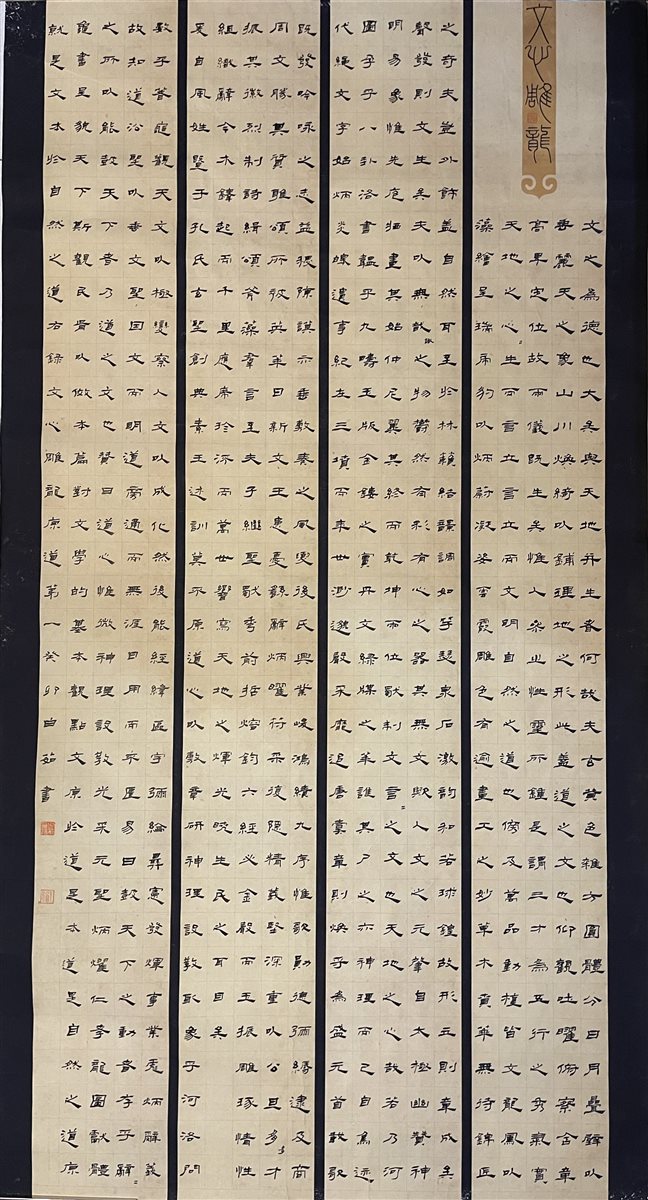 文心雕龍
文之為德也大矣與天地并生者何哉夫玄黃色雜方圓體分日月疊璧以
垂麗天之象山川煥綺以鋪理地之形此蓋道之文也仰觀吐曜俯察含章
高卑定位故兩儀既生矣惟人參之性靈所鍾是謂三才為五行之秀氣實
天地之心=生而言立言立而文明自然之道也傍及萬品動植皆文龍鳳以
藻繪呈瑞虎豹以炳蔚凝姿雲霞雕色有逾畫工之妙草木賁華無待錦匠
之奇夫豈外飾蓋自然耳至於林籟結韻調如竽瑟泉石激韻和若球鍠故形立則章成矣
聲發則文生矣夫以無識之物鬱然有彩有心之器其無文歟人文之元肇自太極幽贊神
明易象惟先庖犧畫其始仲尼翼其終而乾坤兩位獨制文言=之文也天地之心哉若乃河
圖孕乎八卦洛書韞乎九疇玉版金鏤之實丹文綠牒之華誰其尸之亦神理而已自鳥迹
代繩文字始炳炎皞遺事紀在三墳而年世渺邈聲采靡追唐虞章則煥乎為盛元首載歌
既發吟咏之志益稷陳謨亦垂敷奏之風夏后氏興業峻鴻績九序惟歌勳德彌縟逮及商
周文勝其質雅頌所被英華日新文王患憂繇辭炳曜符采復隱精義堅深重以公旦多才
振其徽烈制詩緝頌斧藻群言至夫子繼聖獨秀前哲鎔鈞六經必金聲而玉振雕琢情性
組織辭令木鐸起而千里應席珍流而萬世響寫天地之輝光曉生民之耳目矣
爰自風姓暨于孔氏玄聖創典素王述訓莫不原道心以敷章研神理設教取象乎河洛問
數乎蓍龜觀天文以極變察人文以成化然後能經緯區宇彌綸彝憲發輝事業彪炳辭義
故知道沿聖以垂文聖因文而明道旁通而無涯日用而不匱易曰鼓天下之動者存乎辭=
之所以能鼓天下者乃道之文也贊曰道心惟微神理設教光采元聖炳燿仁孝龍圖獻體
龜書呈貌天下斯觀民胥以傚本篇對文學的基本觀點文原於道是本道是自然之道原
就是文本於自然之道右錄文心雕龍原道第一癸卯白茹書